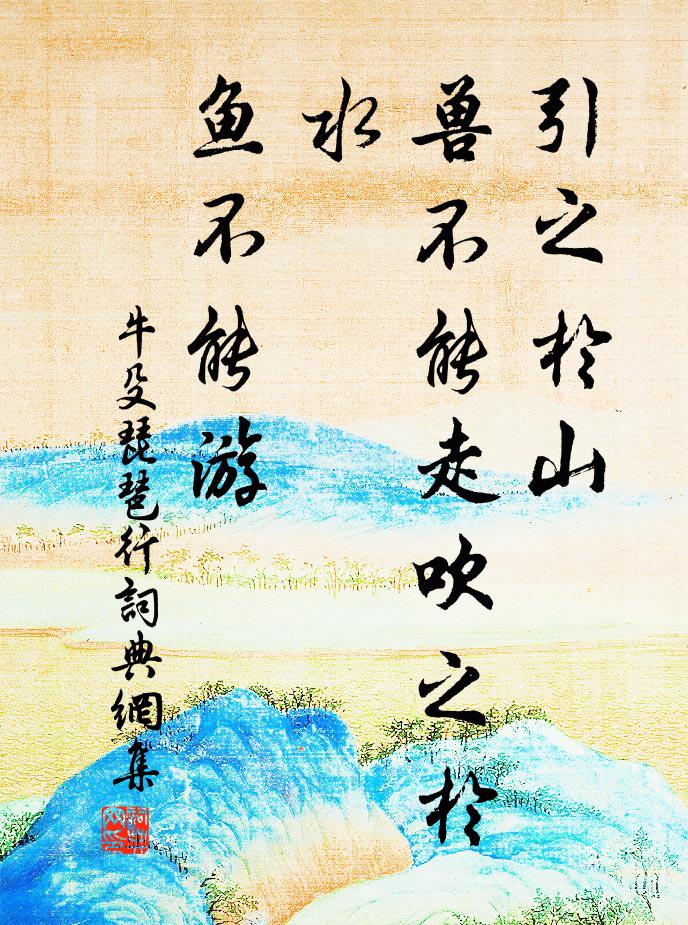 引之於山
兽不能走吹之於
水
鱼不能游
牛殳琵琶行詞典網集